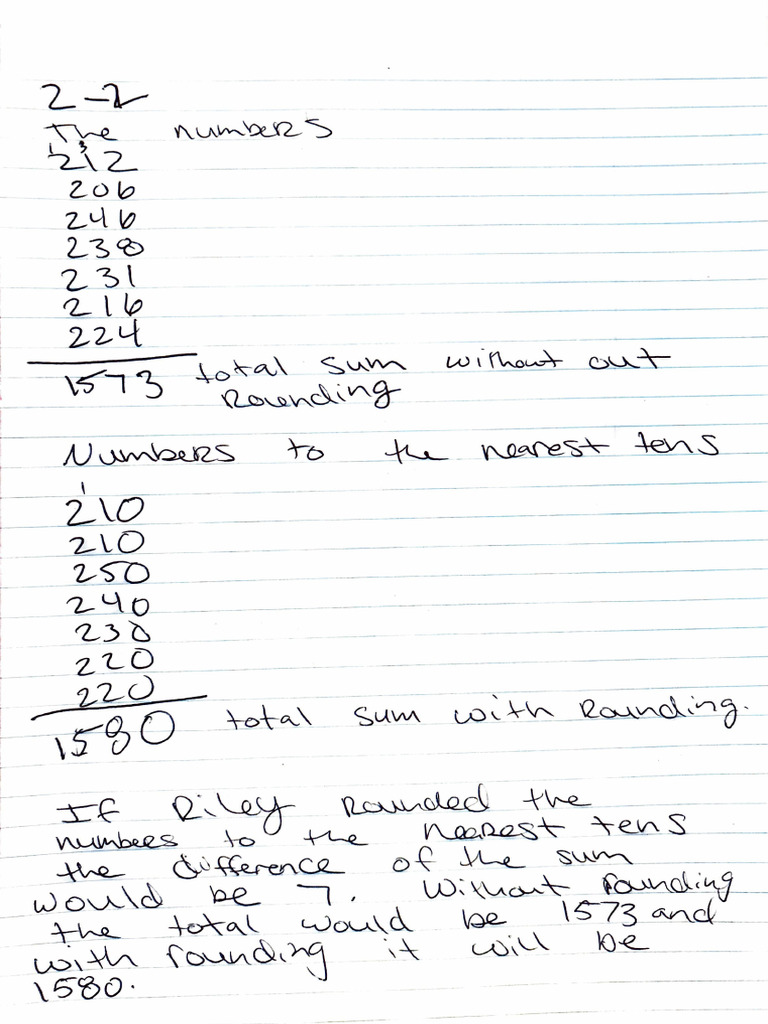 2-2
The numbers
1 3
212
206
246
238
231
216
224
1573 total sum without out
Rounding
Numbers to the nearest tens
1
210
210
250
240
230
220
220
1580 total sum with Rounding.
If Riley Rounded the
numbers to the neaRest tens
the difference of the sum
would be 7. Without rounding
the total would be 1573 and
with rounding it will be
1580.